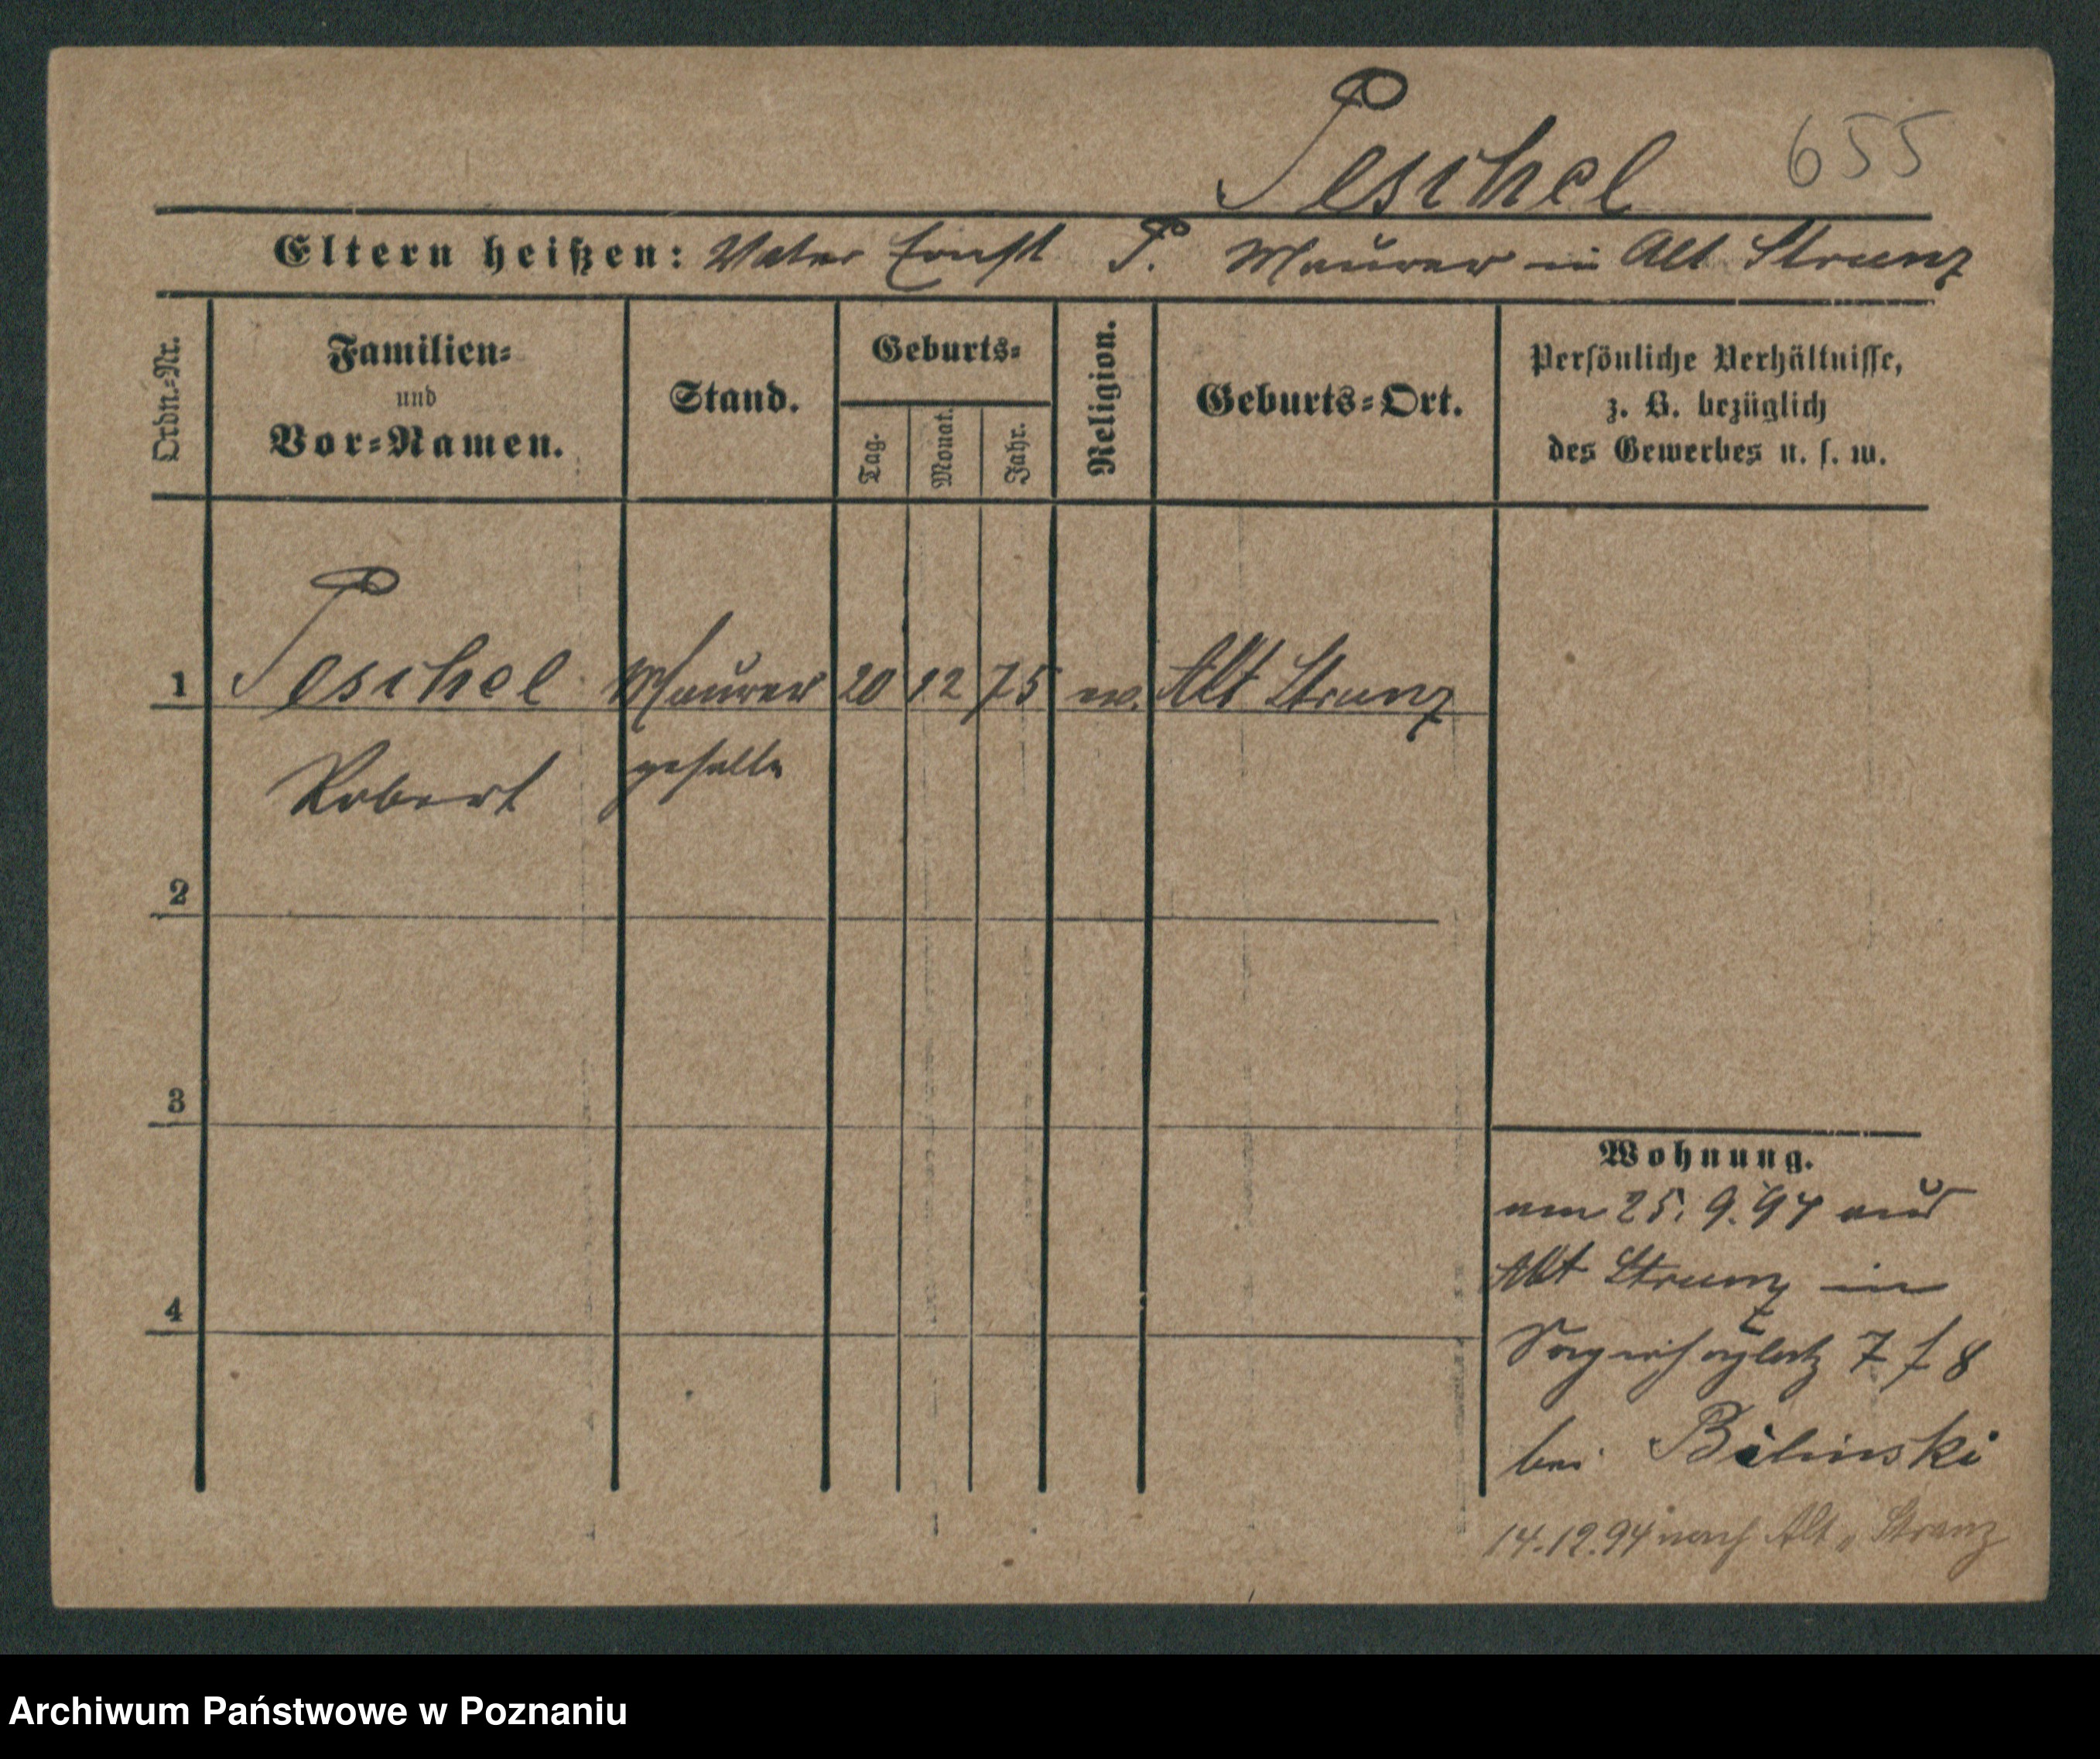 Peschel 655
Eltern heißen: Vater Ernst P. Maurer in Alt Strunz
Ordn.=Nr.
Familien=
und
Vor=Namen.
Stand.
Geburts=
Tag.
Monat.
Jahr.
Religion.
Geburts=Ort.
Persönliche Verhältnisse,
z. B. bezüglich
des Gewerbes u. s. w.
1 Peschel Maurer 20 12 75 ev. Alt Strunz
Robert geselle
2
3
4
Wohnung.
am 25. 9. 94 aus
Alt Strunz in
Sapiehaplatz 7 / 8
bei Bilinski
14.12.94 nach Alt Strunz
Archiwum Państwowe w Poznaniu